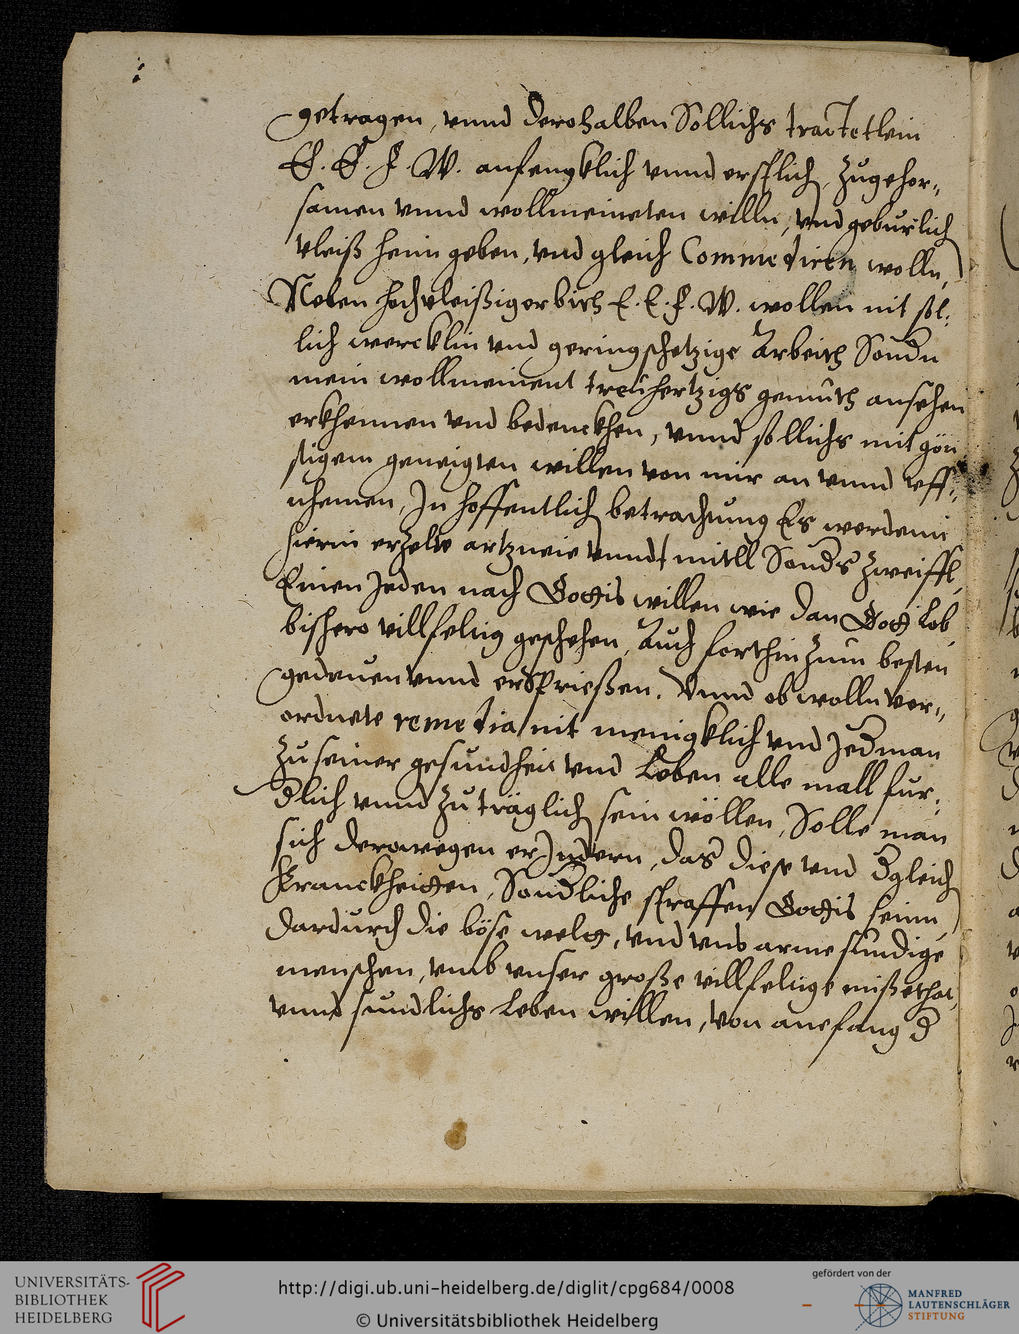 getragen, vnnd derohalben Sollichs tractetlein
E. E. F. W. anfengklich vnnd erstlich, zugehor¬
samen vnnd wollmeineten willn, vnd geburlich
vleiß heim geben, vnd gleich Commediren wolln,
Neben hochvleißiger bith E. E. F. W. wollen nit sol¬
lich wercklin vnd geringschetzige Arbeith Sondn
mein wollmeinent treuhertzigs gemuth ansehen
erkhennen vnd bedenckhen, vnnd sollichs mit gön
stigem geneigten willen von mir an vnnd vff¬
nhemen, In hoffentlich betrachung Es werden
hierin erzelte artzneie vnndt mittll Sonds zweiffl,
Einem Jeden nach Gottis willen wie dan Gott lob
bishero villfeltig geschehen, Auch forthin zum besten
gedeuen vnnd ersprießen. Vnnd ob wolln ver¬
ordnete remedia nit menigklich vnd Jedman
zu seiner gesundheit vnd Leben alle mall fur¬
dlich vnnd zuträglich sein wöllen, Solle man
sich derowegen erJndern, das diese vnd dgleich
Kranckheitten, Sondliche straffen Gottis seinn,
dardurch die böse welt, vnd vns arme sundige
menschen, vmb vnser große villfeltige mißethat,
vnnd sundlichs Leben willen, von anefang d
UNIVERSITÄTS-
BIBLIOTHEK
HEIDELBERG
http://digi.ub.uni-heidelberg.de/diglit/cpg684/0008
© Universitätsbibliothek Heidelberg
gefördert von der
MANFRED
LAUTENSCHLÄGER
STIFTUNG